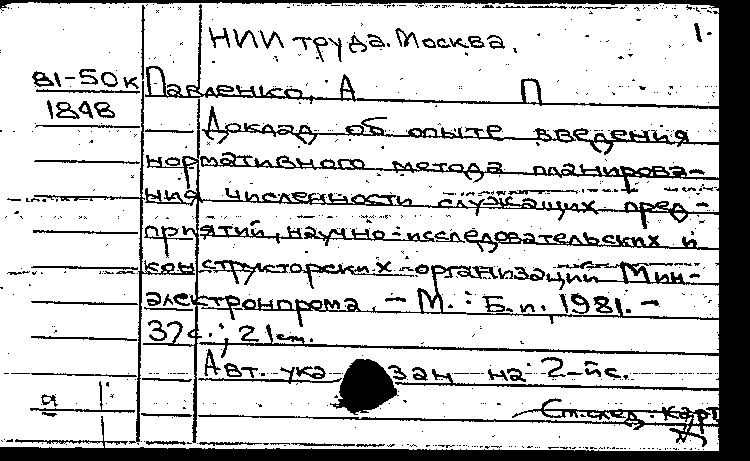 НИИ труда. Москва.
1.
81-50к Павленко, А П
1848
Доклад об опыте введения
нормативного метода планирова-
ния численности служащих пред-
приятий, научно-исследовательских и
конструкторских организаций Мин-
электронпрома. - М.: Б.и., 1981. -
37с.; 21см.
Авт. указан на 2-й с.
а
См.след.карт